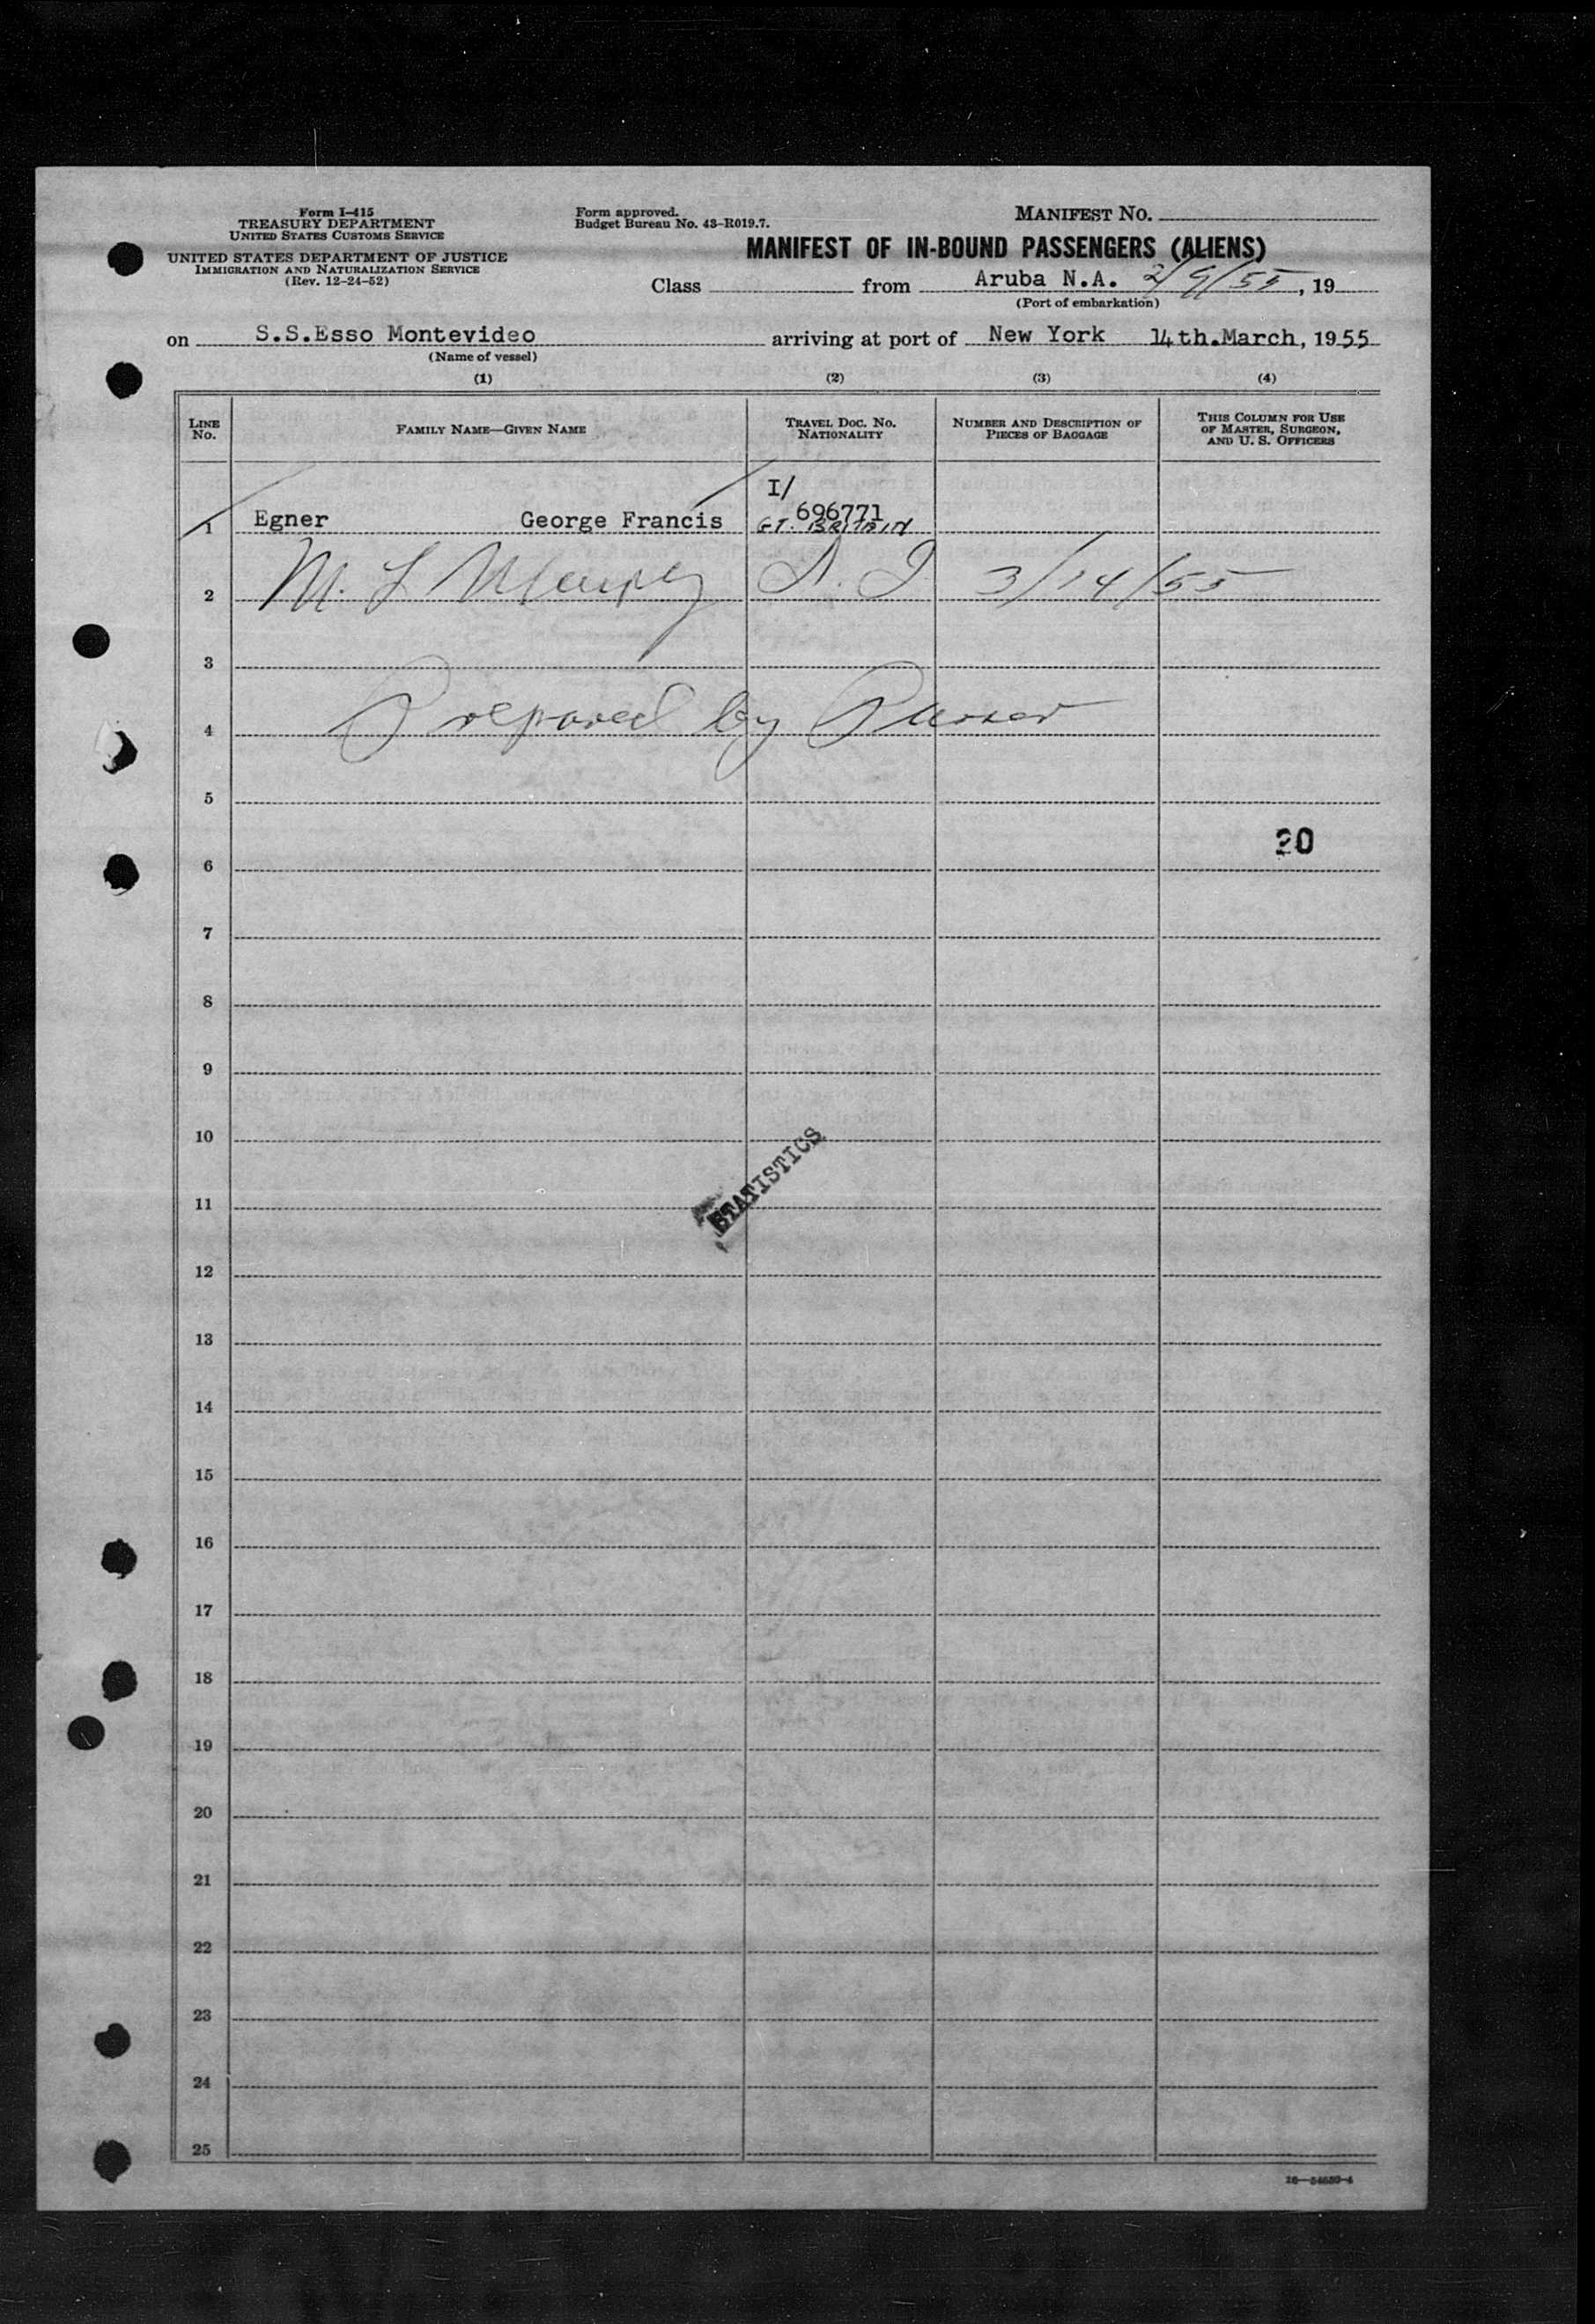 Form I-415
TREASURY DEPARTMENT
UNITED STATES CUSTOMS SERVICE
UNITED STATES DEPARTMENT OF JUSTICE
IMMIGRATION AND NATURALIZATION SERVICE
(Rev. 12-24-52)
Form approved.
Budget Bureau No. 43-R019.7.
MANIFEST NO.
MANIFEST OF IN-BOUND PASSENGERS (ALIENS)
Class from Aruba N.A. /55, 19
(Port of embarkation)
on S.S.Esso Montevideo arriving at port of New York 14th.March, 1955
(Name of vessel)
(1) (2) (3) (4)
LINE No. FAMILY NAME—GIVEN NAME TRAVEL DOC. NO. NATIONALITY NUMBER AND DESCRIPTION OF PIECES OF BAGGAGE THIS COLUMN FOR USE OF MASTER, SURGEON, AND U. S. OFFICERS
I/
696771
1 Egner George Francis GT. BRITAIN
2 M. L 3/14/55
3
4 Prepared by Purser
5
20
6
7
8
9
10
STATISTICS
11
12
13
14
15
16
17
18
19
20
21
22
23
24
25